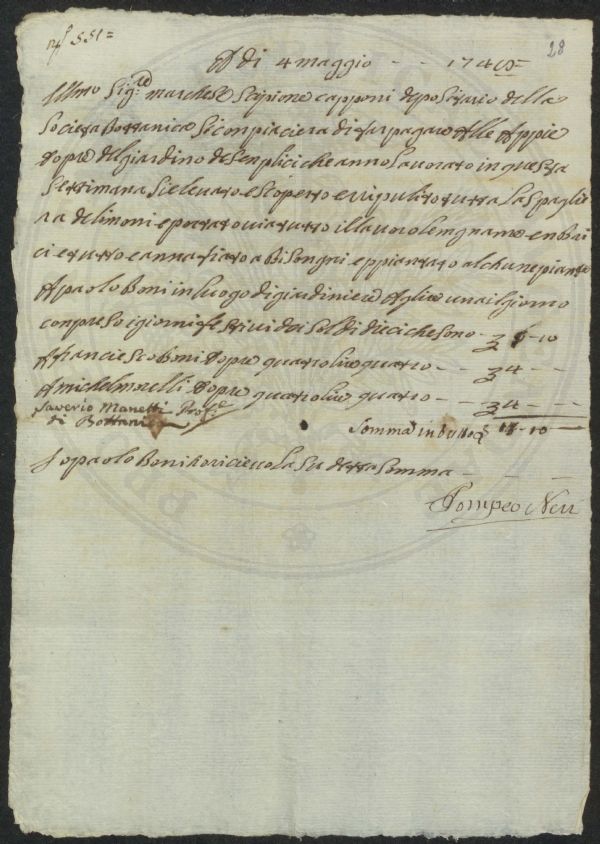 n.° 551=
28
A dì 4 maggio - - 1749
Illmo Sig:re marchese Scipione capponi depositario della
Società Bottanica Si conpiacierà di far pagare Alle Appie
dopre del giardino de Senplici che anno lavorato in questa
Settimana Si è levato e scoperto e ripulito tutta La Spaglie
ra de limoni e portato via tutto il lavoro lengname enbri
ci e tutto e annafiato a Bisongni e ppiantato alchune piante
A paolo Boni in luogo di giardiniere A lire una il giorno
conpreso i giorni festivi dei Soldi dieci che sono - 10
A franciesco Boni dopre quatro lire quatro - - 4 - -
A michel morelli dopre quatro lire quatro - - 4 - -
Saverio Manetti Prof.e
di Bottanica
Somma in tutto - 10 -
Io paolo Boni ò riceuto La Su detta Somma - - -
Pompeo Neri